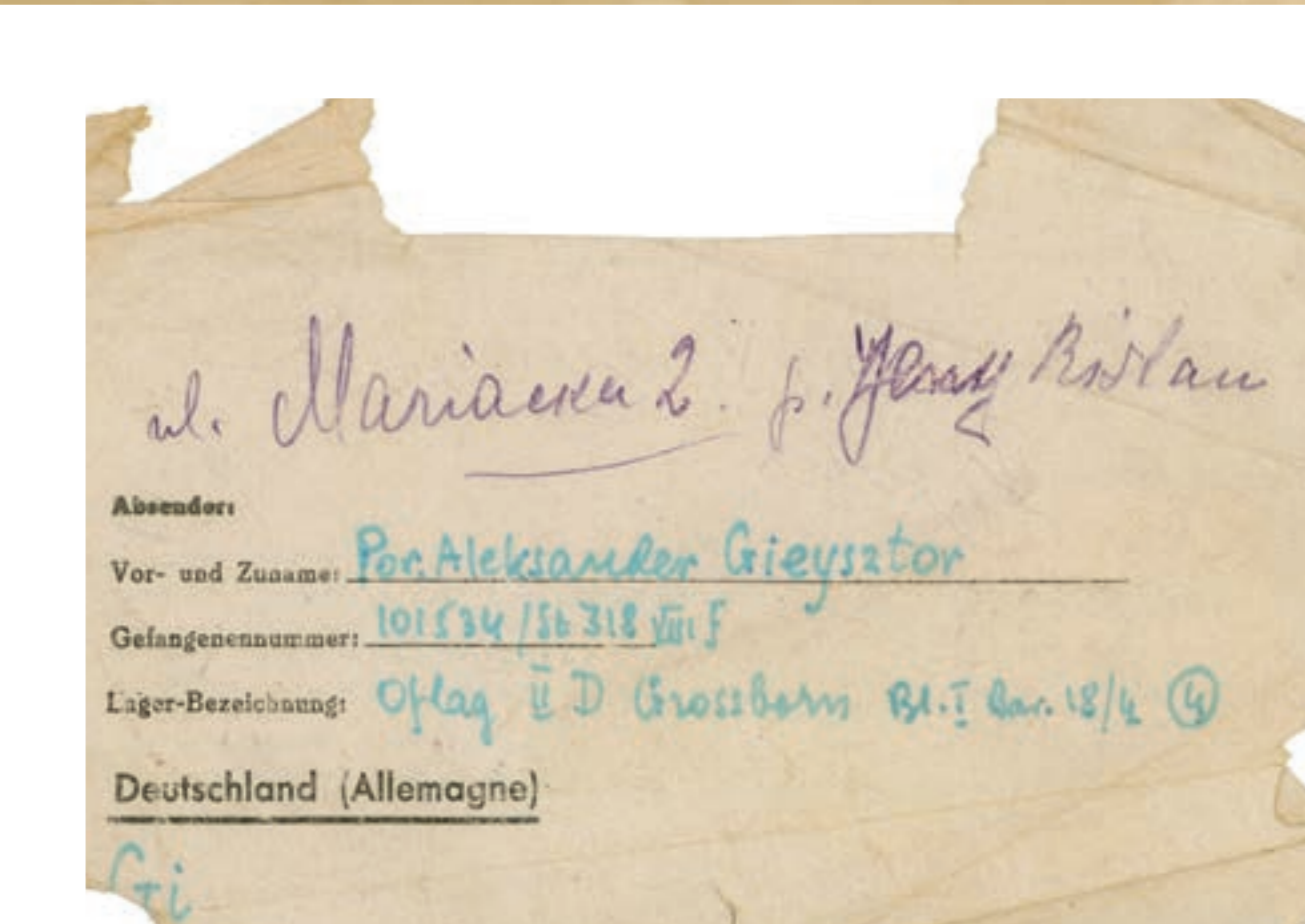 ul. Mariacka 2. p. Jerzy
Absender:
Vor- und Zuname: Por. Aleksander Gieysztor
Gefangenennummer: 101534/St 318 VIII F
Lager-Bezeichnung: Oflag II D Grossborn Bl. I Bar. 18/4 4
Deutschland (Allemagne)
Gi